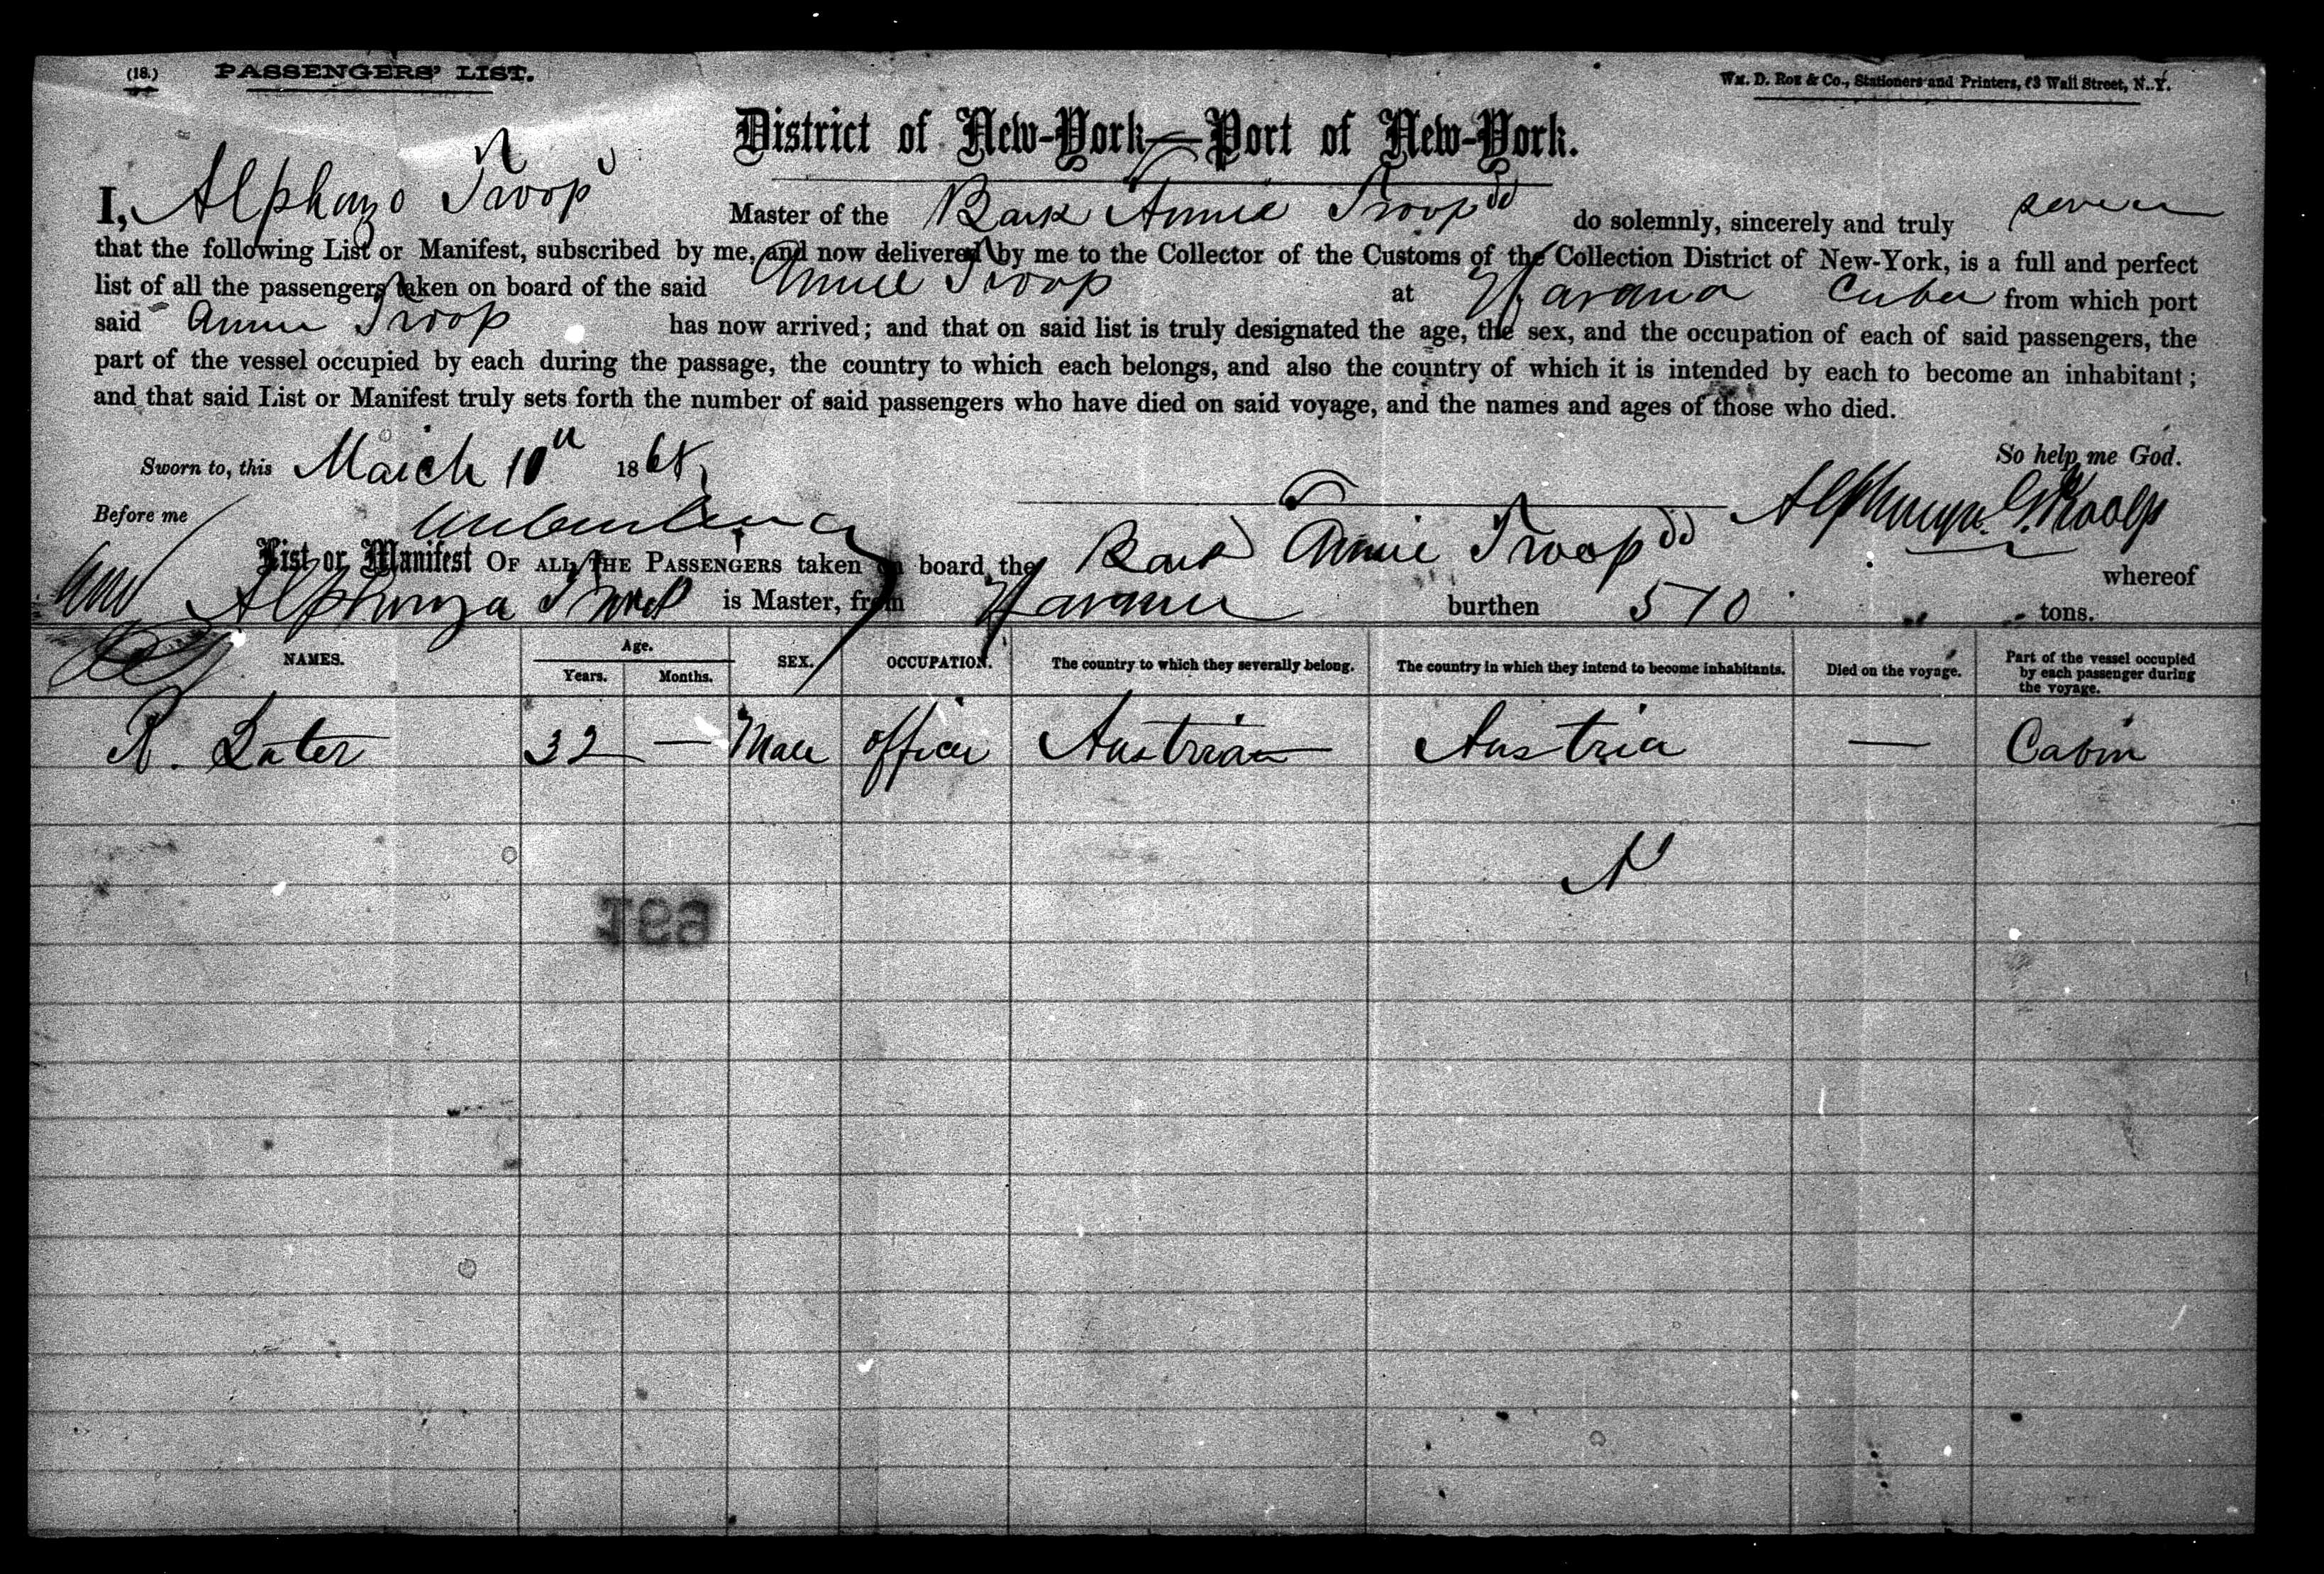 (18.) PASSENGERS' LIST. Wm. D. Roe & Co., Stationers and Printers, 63 Wall Street, N.Y.
District of New-York—Port of New-York.
I, Alphonzo Troop Master of the Bark Annie Troop do solemnly, sincerely and truly swear
that the following List or Manifest, subscribed by me, and now delivered by me to the Collector of the Customs of the Collection District of New-York, is a full and perfect
list of all the passengers taken on board of the said Annie Troop at Havana Cuba from which port
said Annie Troop has now arrived; and that on said list is truly designated the age, the sex, and the occupation of each of said passengers, the
part of the vessel occupied by each during the passage, the country to which each belongs, and also the country of which it is intended by each to become an inhabitant;
and that said List or Manifest truly sets forth the number of said passengers who have died on said voyage, and the names and ages of those who died.
So help me God.
Sworn to, this March 10th 1868,
Before me
List or Manifest OF ALL THE PASSENGERS taken on board the Bark Annie Troop whereof
Alphonza Troop is Master, from Havana burthen 510 tons.
NAMES. Age. Years. Months. SEX. OCCUPATION. The country to which they severally belong. The country in which they intend to become inhabitants. Died on the voyage. Part of the vessel occupied by each passenger during the voyage.
R. Later 32 — Male officer Austrian Austria — Cabin
N